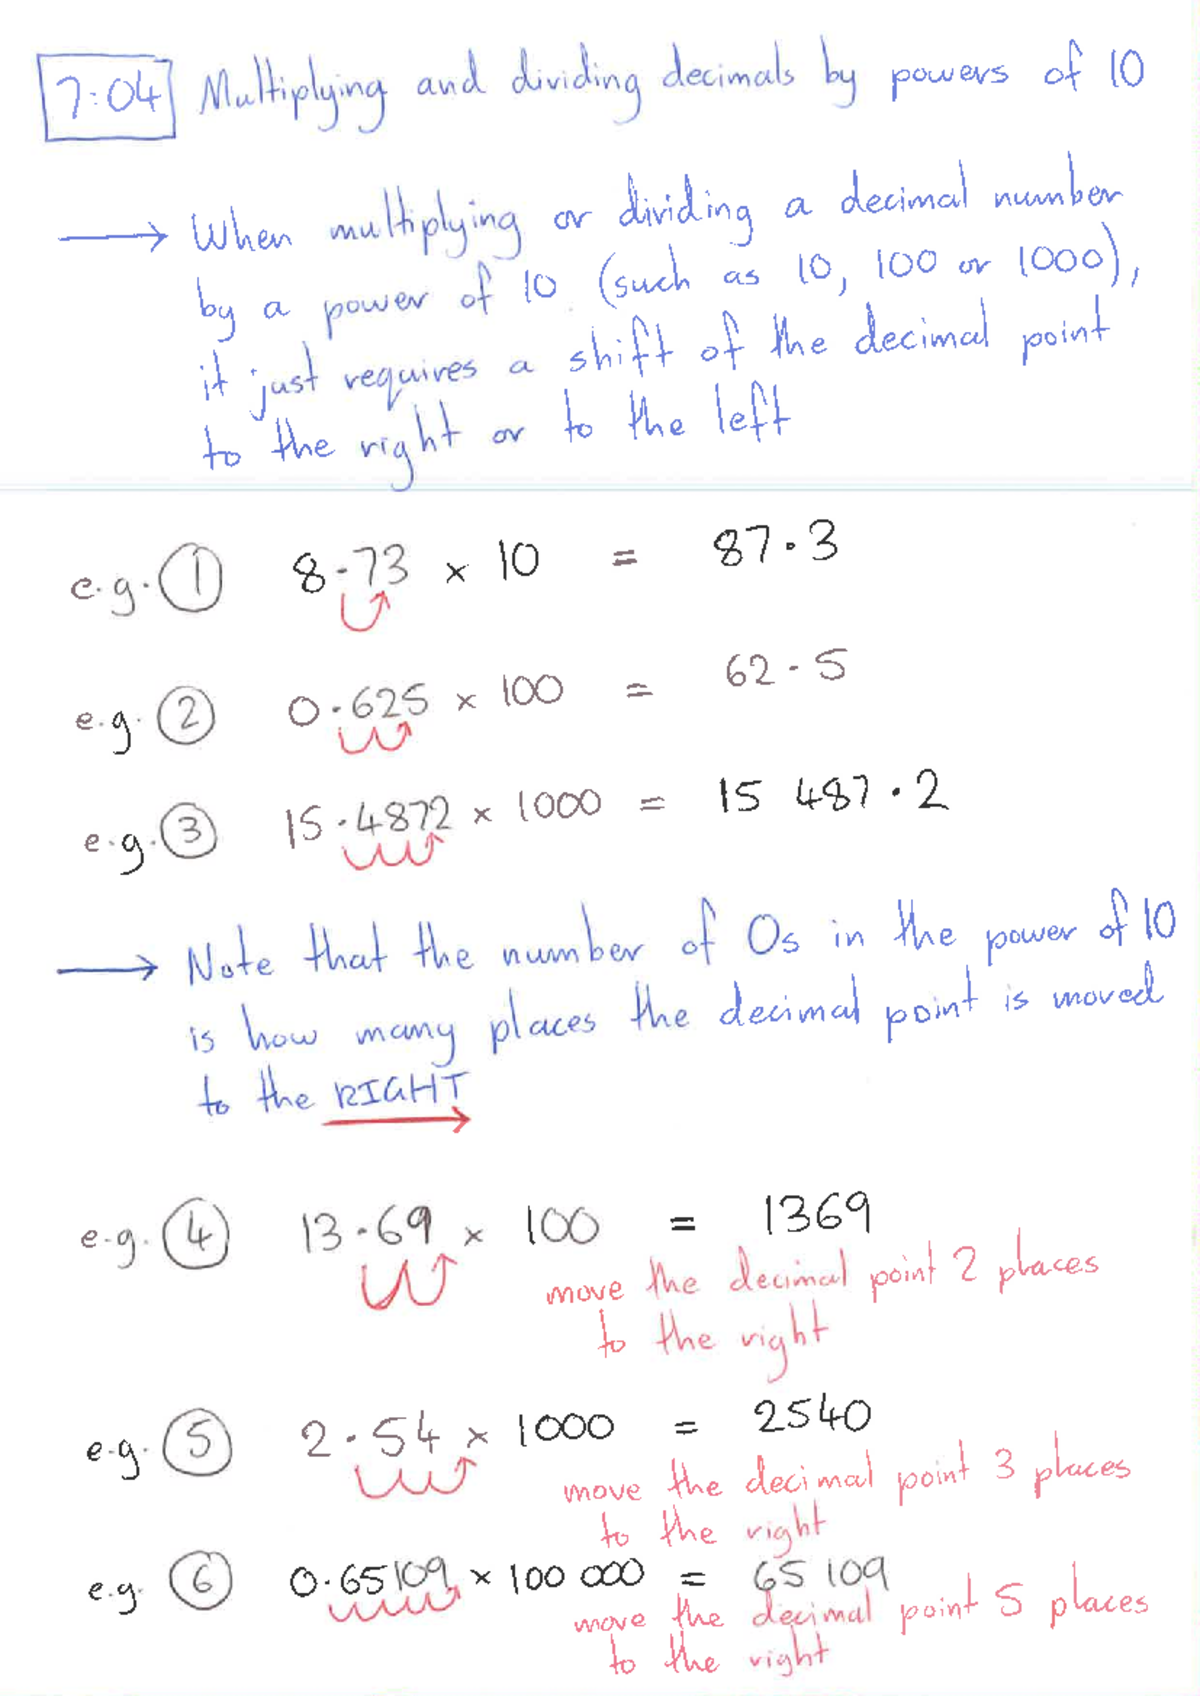 7:04 Multiplying and dividing decimals by powers of 10
→ When multiplying or dividing a decimal number
by a power of 10 (such as 10, 100 or 1000),
it just requires a shift of the decimal point
to the right or to the left
e.g. ① 8.73 × 10 = 87.3
e.g. ② 0.625 × 100 = 62.5
e.g. ③ 15.4872 × 1000 = 15 487.2
→ Note that the number of 0s in the power of 10
is how many places the decimal point is moved
to the RIGHT
e.g. ④ 13.69 × 100 = 1369
move the decimal point 2 places
to the right
e.g. ⑤ 2.54 × 1000 = 2540
move the decimal point 3 places
to the right
e.g. ⑥ 0.65109 × 100 000 = 65 109
move the decimal point 5 places
to the right